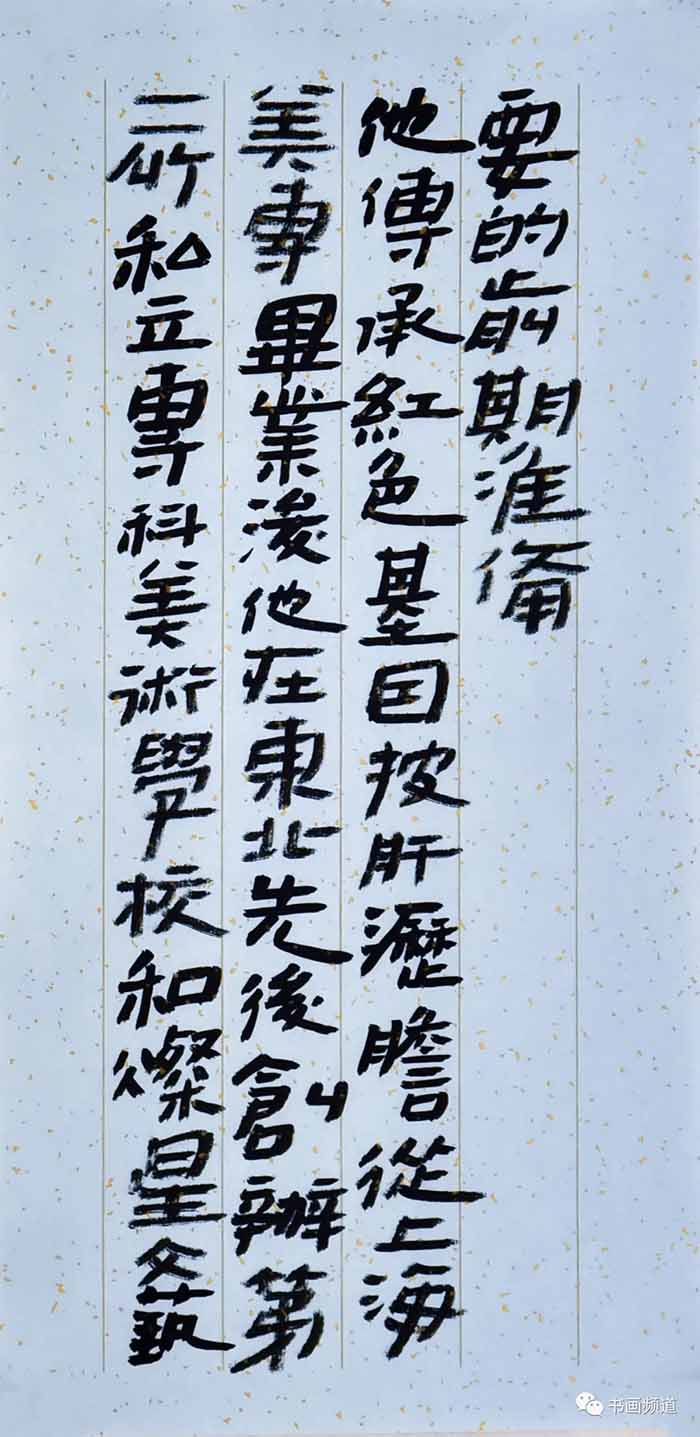 要的前期淮備
他傳承紅色基因披肝瀝膽從上海
美專畢業後他在東北先後創辦第
二所私立專科美術學校和燦星文藝
书画频道